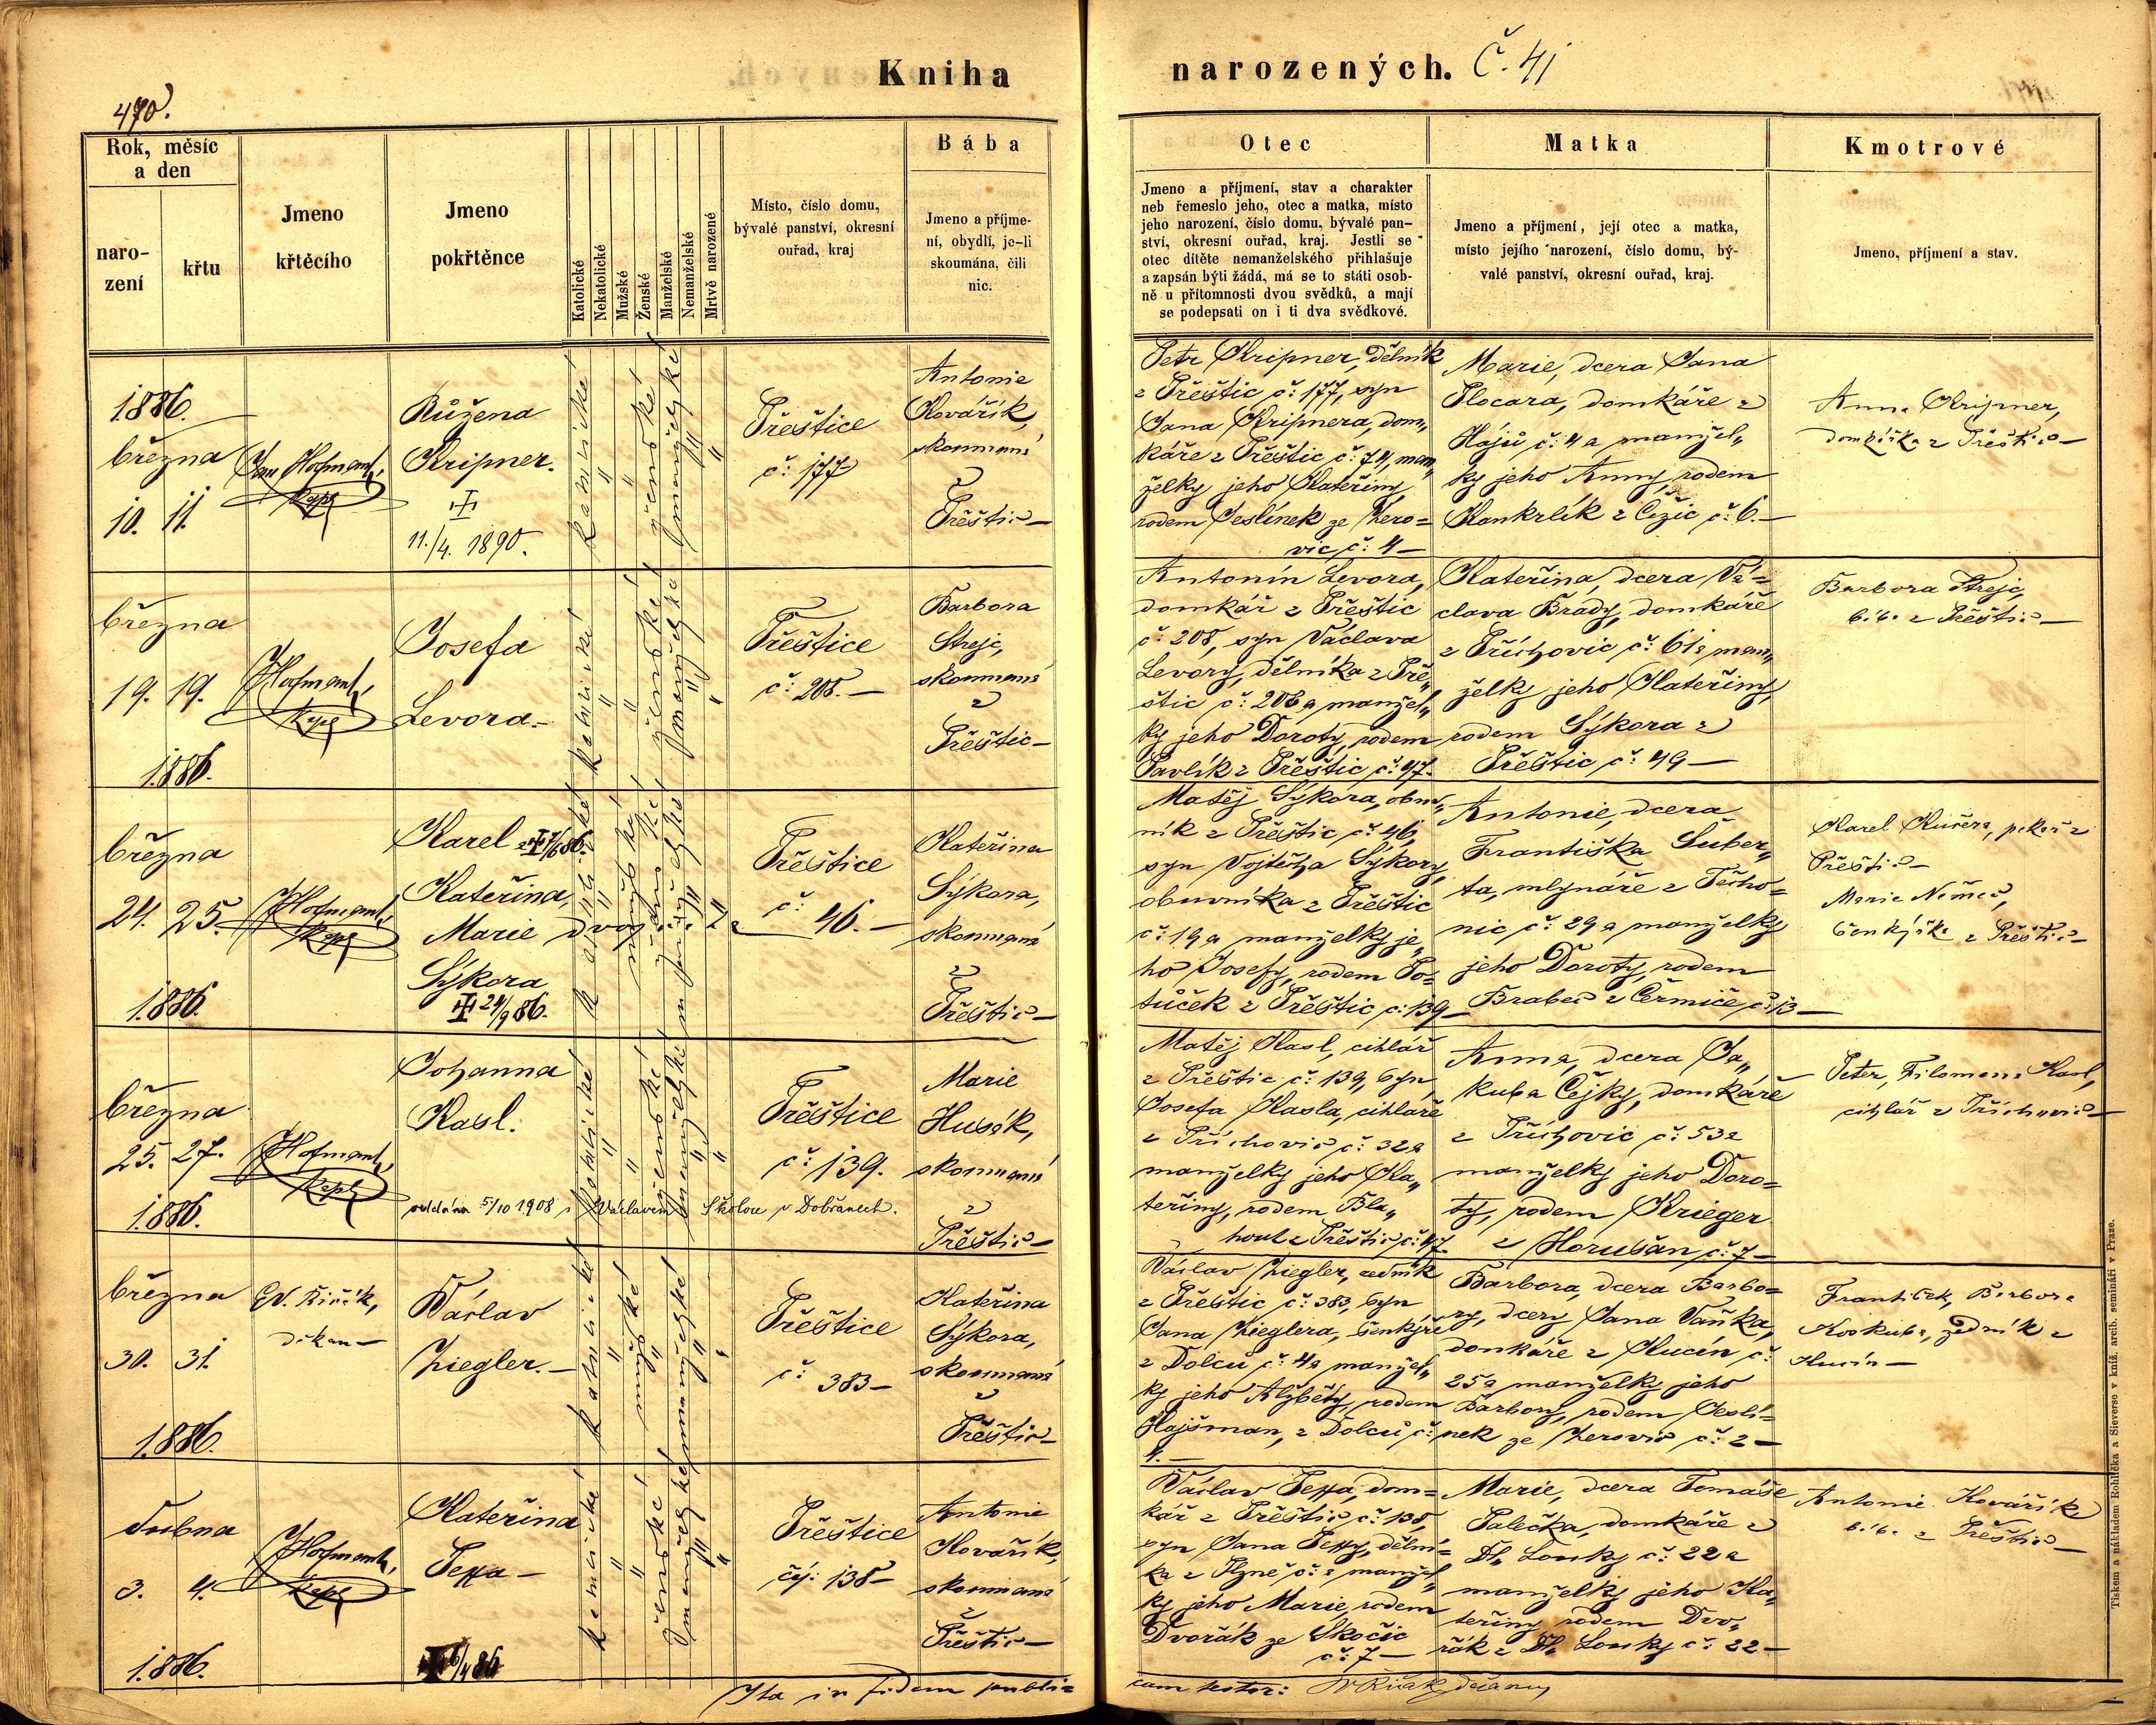 470.
Kniha
narozených. Č. 41
Rok, měsíc
a den
naro-
zení
křtu
Jmeno
křtěcího
Jmeno
pokřtěnce
Katolické
Nekatolické
Mužské
Ženské
Manželské
Nemanželské
Mrtvě narozené
Místo, číslo domu,
bývalé panství, okresní
ouřad, kraj
Bába
Jmeno a příjme-
ní, obydlí, je-li
skoumána, čili
nic.
Otec
Jmeno a příjmení, stav a charakter
neb řemeslo jeho, otec a matka, místo
jeho narození, číslo domu, bývalé pan-
ství, okresní ouřad, kraj. Jestli se
otec dítěte nemanželského přihlašuje
a zapsán býti žádá, má se to státi osob-
ně u přítomnosti dvou svědků, a mají
se podepsati on i ti dva svědkové.
Matka
Jmeno a příjmení, její otec a matka,
místo jejího narození, číslo domu, bý-
valé panství, okresní ouřad, kraj.
Kmotrové
Jmeno, příjmení a stav.
1886.
března
10. 11.
Jan Hofmann,
kapl
Růžena
Kripner.
11./4. 1890.
katolické
ženské
manželské
Přeštice
č: 177
Antonie
Kovářík,
skoumaná
z
Přeštic
Petr Kripner, dělník
z Přeštic č: 177, syn
Jana Kripnera, dom„
káře z Přeštic č: 74, man„
želky jeho Kateřiny,
rodem Jeslínek ze Žero=
vic č: 4
Marie, dcera Jana
Flocara, domkáře z
Hájů č: 4 a manžel„
ky jeho Anny, rodem
Kankrlík z Čížic č: 6.
Anna Kripner,
domkářka z Přeštic
března
19. 19.
1886.
J Hofmann,
kapl
Josefa
Levora
katolické
ženské
manželské
Přeštice
č: 208.
Barbora
Strejc,
skoumaná
z
Přeštic
Antonín Levora,
domkář z Přeštic
č: 208, syn Václava
Levory, dělníka z Pře„
štic č: 208 a manžel„
ky jeho Doroty, rodem
Pavlík z Přeštic č: 47.
Kateřina, dcera Vá=
clava Brady, domkáře
z Příchovic č: 61 a man„
želky jeho Kateřiny,
rodem Sýkora z
Přeštic č: 49
Barbora Strejc,
bába z Přeštic
března
24. 25.
1886.
J Hofmann,
kapl
Karel
Kateřina,
Marie dvojčata
Sýkora
24/9 86.
katolické
mužské
ženské
manželské
Přeštice
č: 46.
Kateřina
Sýkora,
skoumaná
z
Přeštic
Matěj Sýkora, obuv„
ník z Přeštic č: 46,
syn Vojtěcha Sýkory,
obuvníka z Přeštic
č: 19 a manželky je„
ho Josefy, rodem Po=
tůček z Přeštic č: 139
Antonie, dcera
Františka Šuber„
ta, mlynáře z Těcho=
nic č: 29 a manželky
jeho Doroty, rodem
Brabec z Čermiče č: 13
Karel Kučera, pekař z
Přeštic
Marie Němec,
šenkýřka z Přeštic
března
25. 27.
1886.
J Hofmann,
kapl
Johanna
Kasl.
oddána 5/10 1908 s Václavem Školou v Dobřanech.
katolické
ženské
manželské
Přeštice
č: 139.
Marie
Husák,
skoumaná
z
Přeštic
Matěj Kasl, cihlář
z Přeštic č: 139, syn
Josefa Kasla, cihláře
z Příchovic č: 32 a
manželky jeho Ka„
teřiny, rodem Bla„
hout z Přeštic č: 47.
Anna, dcera Ja„
kuba Čejky, domkáře
z Příchovic č: 53 a
manželky jeho Doro=
ty, rodem Krieger
z Horušan č: 7
Peter, Filomena Kasl,
cihlář z Příchovic
března
30. 31.
1886.
děkan
Václav
Ziegler.
katolické
mužské
manželské
Přeštice
č: 383
Kateřina
Sýkora,
skoumaná
z
Přeštic
Václav Ziegler, zedník
z Přeštic č: 383, syn
Jana Zieglera, šenkýře
z Dolců č: 4 a manžel„
ky jeho Alžběty, rodem
Hajšman, z Dolců č:
4.
Barbora, dcera Barbo=
ry, dcery Jana Vaňka,
domkáře z Kucín č:
25 a manželky jeho
Barbory, rodem Jeslí=
nek ze Žerovic č: 2
František, Barbora
Koskuba, zedník z
Kucín
dubna
3. 4.
1886.
J Hofmann,
kapl
Kateřina
Teppa
6/4 86
katolické
ženské
manželské
Přeštice
čj: 138
Antonie
Kovářík,
skoumaná
z
Přeštic
Václav Teppa, dom=
kář z Přeštic č: 138,
syn Jana Teppy, dělní=
ka z Plzně č: a manžel„
ky jeho Marie, rodem
Dvořák ze Skočic
č: 7
Marie, dcera Tomáše
Palečka, domkáře z
Dl. Louky č: 22 a
manželky jeho Ka„
teřiny rodem Dvo„
řák z Dl. Louky č: 22
Antonie Kovářík
bába z Přeštic
Ita in fidem publi=
cam testor:
Tiskem a nákladem Rohlíčka a Sieverse v kníž. arcib. semináři v Praze.